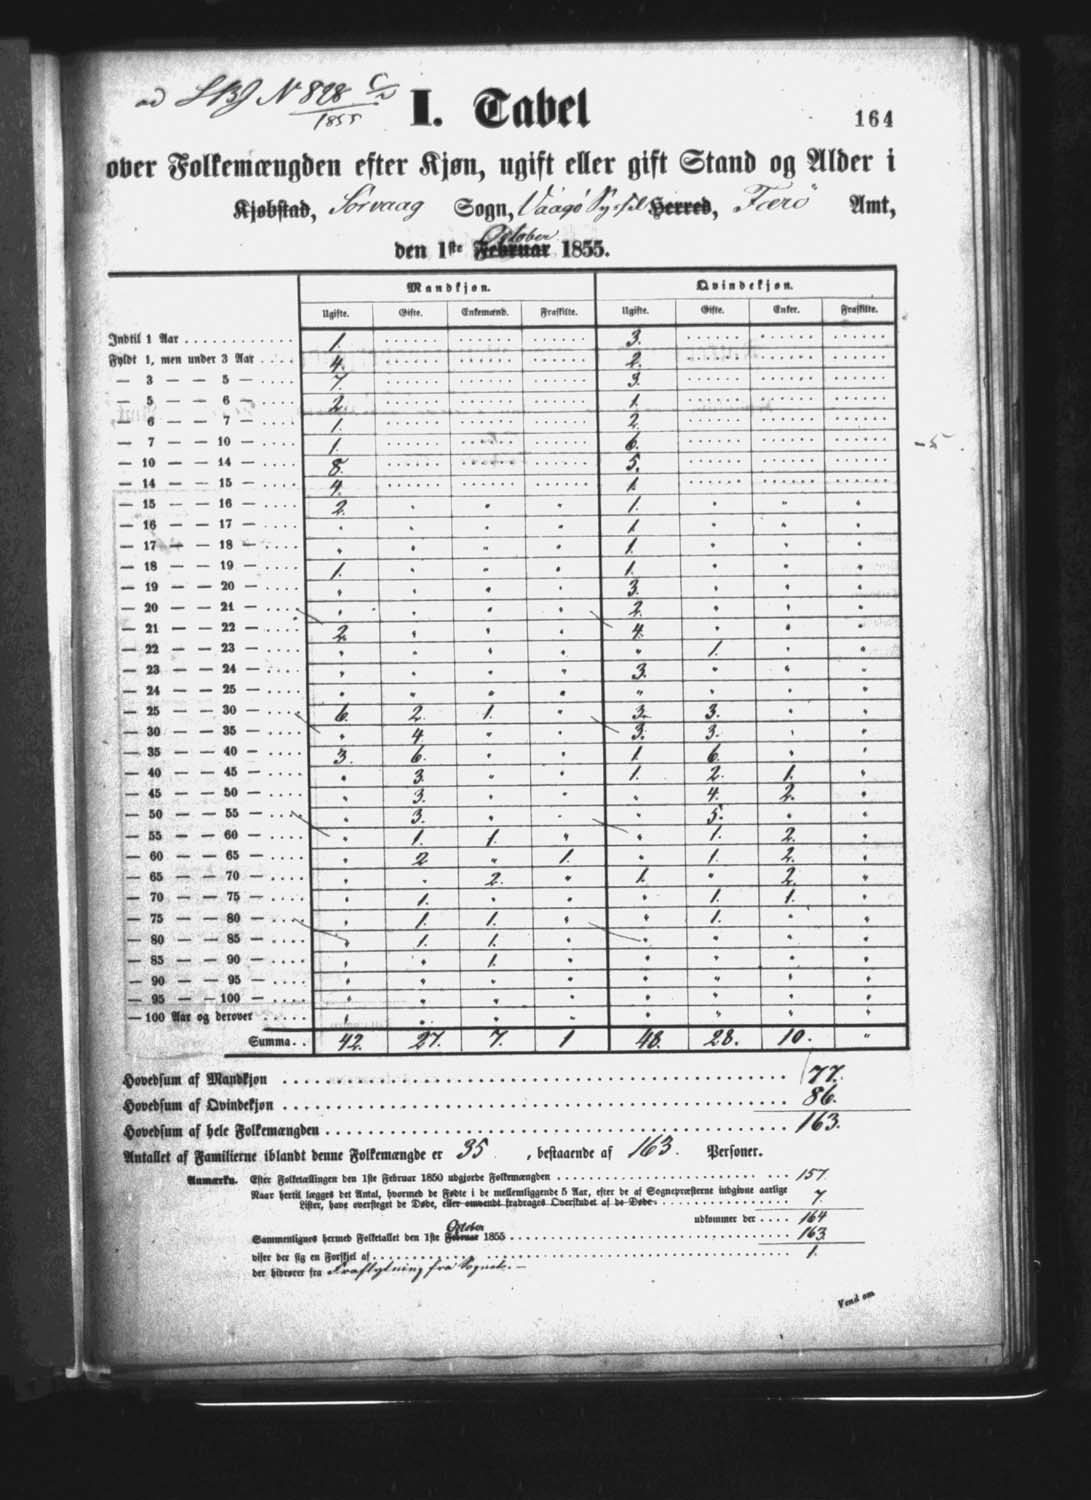 ad LBJ No 828 C/2
1855
I. Tabel
164
over Folkemængden efter Kjøn, ugift eller gift Stand og Alder i
Kjøbstad, Sørvaag Sogn, Vaagø Syssel Herred, Færö Amt,
October
den 1ste Februar 1855.
Mandkjøn. Qvindekjøn.
Ugifte. Gifte. Enkemænd. Fraskilte. Ugifte. Gifte. Enker. Fraskilte.
Indtil 1 Aar . . . . . . . . . . . . . 1. 3.
Fyldt 1, men under 3 Aar . . . . 4. 2.
— 3 — — 5 — . . . . 7. 3.
— 5 — — 6 — . . . . 2. 1.
— 6 — — 7 — . . . . 1. 2.
— 7 — — 10 — . . . . 1. 6.
— 10 — — 14 — . . . . 8. 5.
— 14 — — 15 — . . . . 4. 1.
— 15 — — 16 — . . . . 2. " " " 1. " " "
— 16 — — 17 — . . . . " " " " 1. " " "
— 17 — — 18 — . . . . " " " " 1. " " "
— 18 — — 19 — . . . . 1. " " " 1. " " "
— 19 — — 20 — . . . . " " " " 3. " " "
— 20 — — 21 — . . . . " " " " 2. " " "
— 21 — — 22 — . . . . 2. " " " 4. " " "
— 22 — — 23 — . . . . " " " " " 1. " "
— 23 — — 24 — . . . . " " " " 3. " " "
— 24 — — 25 — . . . . " " " " " " " "
— 25 — — 30 — . . . . 6. 2. 1. " 3. 3. " "
— 30 — — 35 — . . . . " 4. " " 3. 3. " "
— 35 — — 40 — . . . . 3. 6. " " 1. 6. " "
— 40 — — 45 — . . . . " 3. " " 1. 2. 1. "
— 45 — — 50 — . . . . " 3. " " " 4. 2. "
— 50 — — 55 — . . . . " 3. " " " 5. " "
— 55 — — 60 — . . . . " 1. 1. " " 1. 2. "
— 60 — — 65 — . . . . " 2 " 1. " 1. 2. "
— 65 — — 70 — . . . . " " 2. " 1. " 2. "
— 70 — — 75 — . . . . " 1. " " " 1. 1. "
— 75 — — 80 — . . . . " 1. 1. " " 1. " "
— 80 — — 85 — . . . . " 1. 1. " " " " "
— 85 — — 90 — . . . . " " 1. " " " " "
— 90 — — 95 — . . . . " " " " " " " "
— 95 — — 100 — . . . . " " " " " " " "
— 100 Aar og derover . . . . . " " " " " " " "
Summa . . 42. 27. 7. 1 48. 28. 10. "
Hovedsum af Mandkjøn . . . . 77.
Hovedsum af Qvindekjøn . . . . 86.
Hovedsum af hele Folkemængden . . . . 163.
Antallet af Familierne iblandt denne Folkemængde er 35 , bestaaende af 163. Personer.
Anmærkn. Efter Folketællingen den 1ste Februar 1850 udgjorde Folkemængden . . . . 157.
Naar hertil lægges det Antal, hvormed de Fødte i de mellemliggende 5 Aar, efter de af Sognepræsterne indgivne aarlige
Lister, have oversteget de Døde, eller omvendt fradrages Overskudet af de Døde . . . . 7.
udkommer der . . . . 164
October
Sammenlignes hermed Folketallet den 1ste Februar 1855 . . . . 163.
viser der sig en Forskjel af . . . . 1.
der hidrører fra Fraflytning fra Sognet. —
Vend om